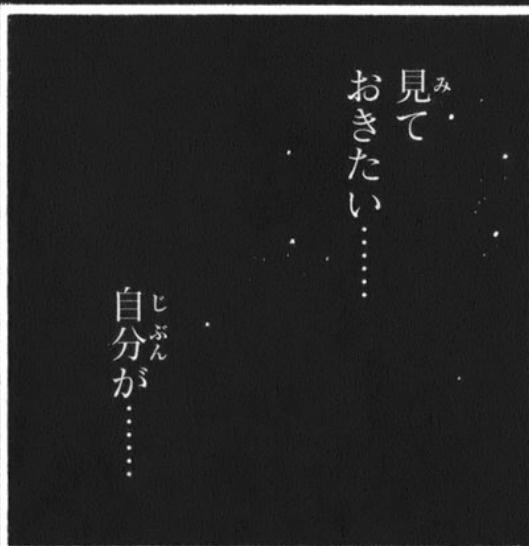 見て
おきたい……
自分が……